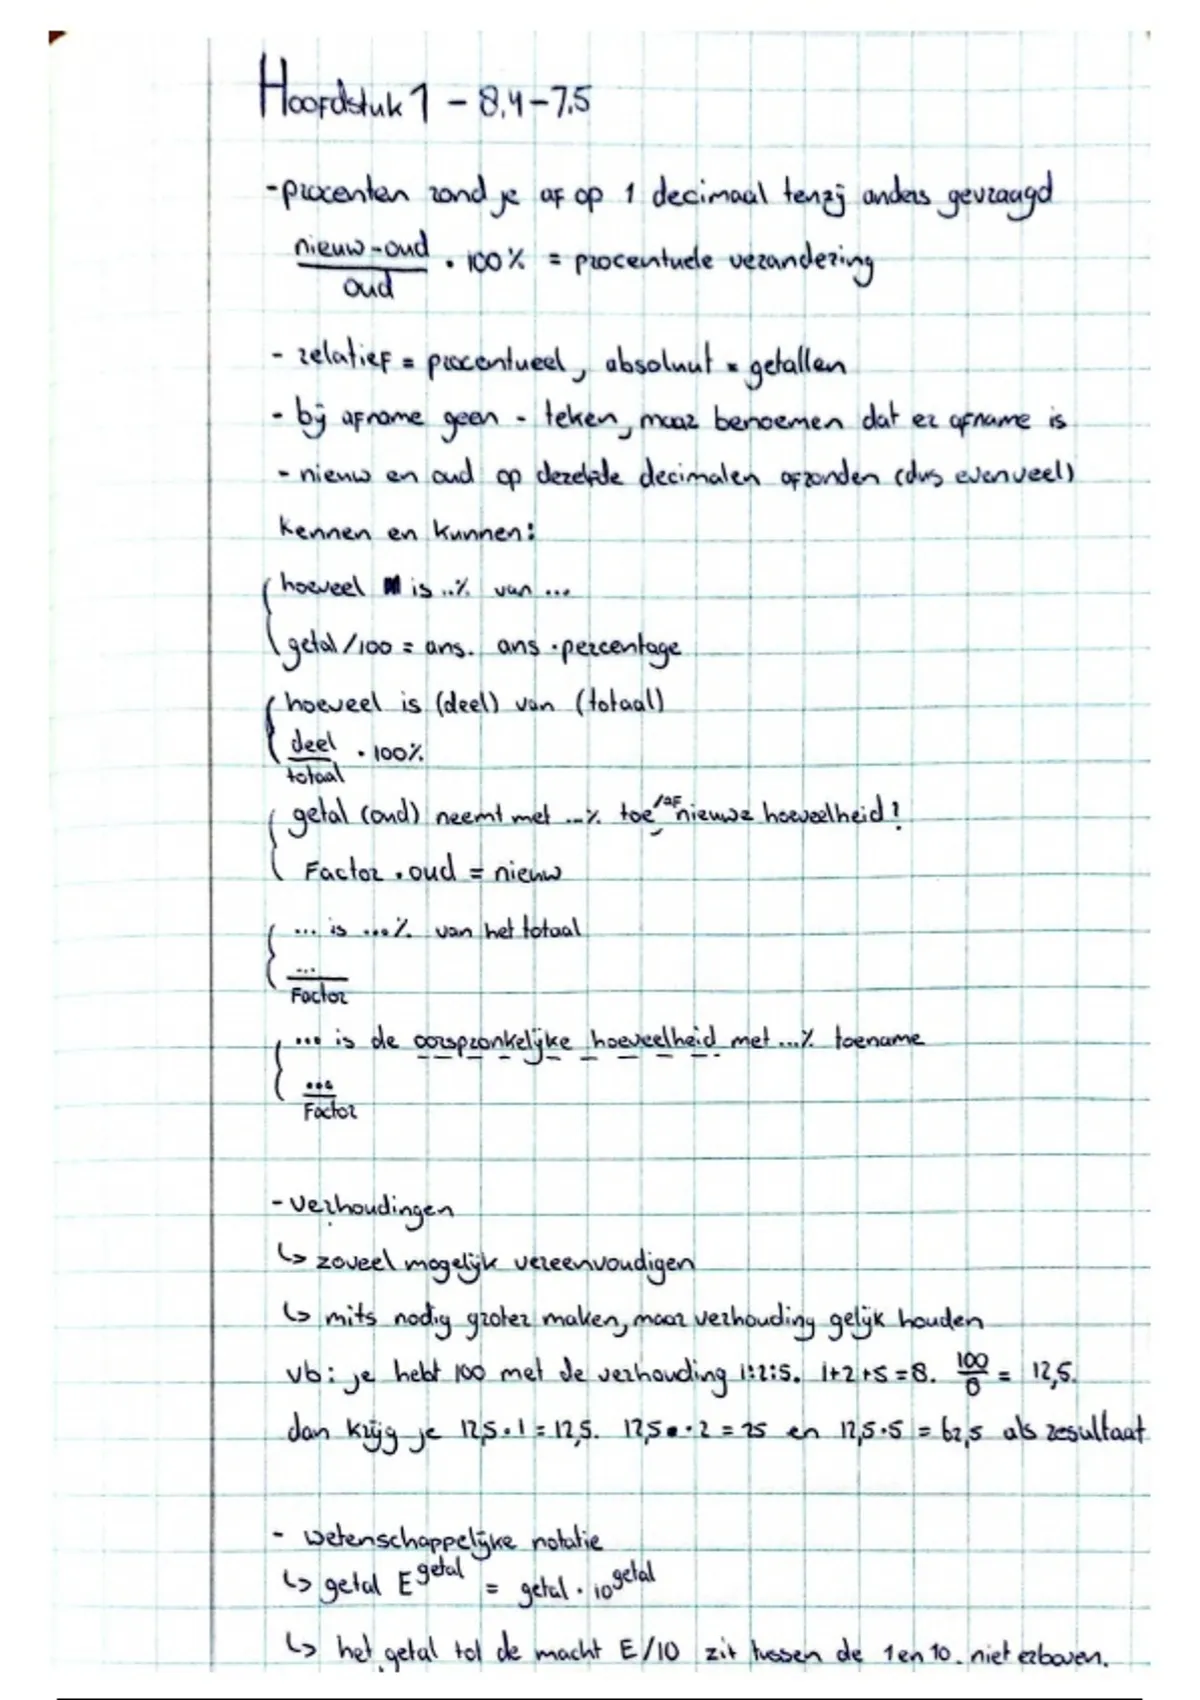 Hoofdstuk 1 - 8,4-7,5
- procenten rond je af op 1 decimaal tenzij anders gevraagd
nieuw-oud / oud · 100% = procentuele verandering
- relatief = procentueel, absoluut = getallen
- bij afname geen - teken, maar benoemen dat er afname is
- nieuw en oud op dezelfde decimalen afronden (dus evenveel)
kennen en kunnen:
hoeveel is ..% van ...
getal/100 = ans. ans · percentage
hoeveel is (deel) van (totaal)
deel / totaal · 100%
getal (oud) neemt met ...% toe/af, nieuwe hoeveelheid?
Factor · oud = nieuw
... is ...% van het totaal
... / Factor
... is de oorspronkelijke hoeveelheid met ...% toename
... / Factor
- verhoudingen
↳ zoveel mogelijk vereenvoudigen
↳ mits nodig groter maken, maar verhouding gelijk houden
vb: je hebt 100 met de verhouding 1:2:5. 1+2+5=8. 100/8 = 12,5.
dan krijg je 12,5·1=12,5. 12,5·2=25 en 12,5·5=62,5 als resultaat
- wetenschappelijke notatie
↳ getal E^getal = getal · 10^getal
↳ het getal tot de macht E/10 zit tussen de 1 en 10. niet erboven.